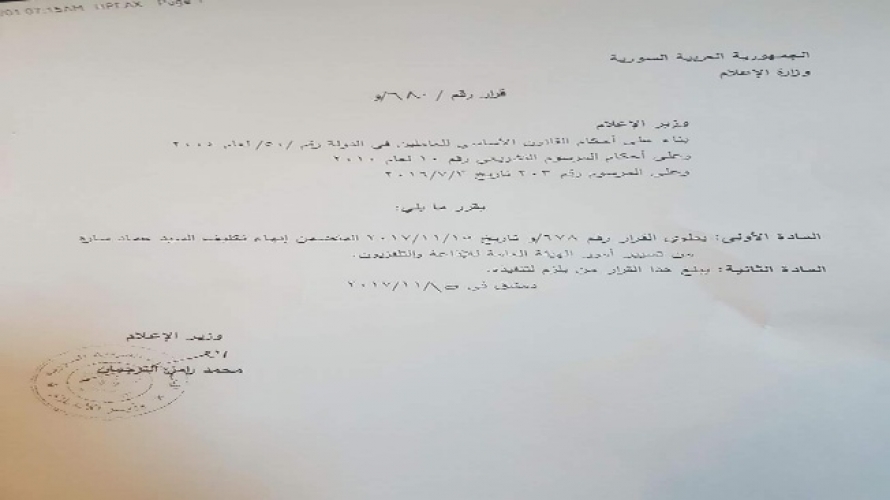 07:15AM Page
الجمهورية العربية السورية
وزارة الإعلام
قرار رقم / ٦٨٠/و
وزير الإعلام
بناء على أحكام القانون الأساسي للعاملين في الدولة رقم /٥٠/ لعام ٢٠٠٥
وعلى أحكام المرسوم التشريعي رقم ١٠ لعام ٢٠١٠
وعلى المرسوم رقم ٢٠٣ تاريخ ٢٠١٦/٧/٣
يقرر ما يلي:
المادة الأولى: يطوى القرار رقم ٦٧٨/و تاريخ ٢٠١٧/١١/١٥ المتضمن إنهاء تكليف السيد عماد سارة
من تسيير أمور الهيئة العامة للإذاعة والتلفزيون.
المادة الثانية: يبلغ هذا القرار من يلزم لتنفيذه.
دمشق في ٢٠١٧/١١/
وزير الإعلام
محمد رامز الترجمان